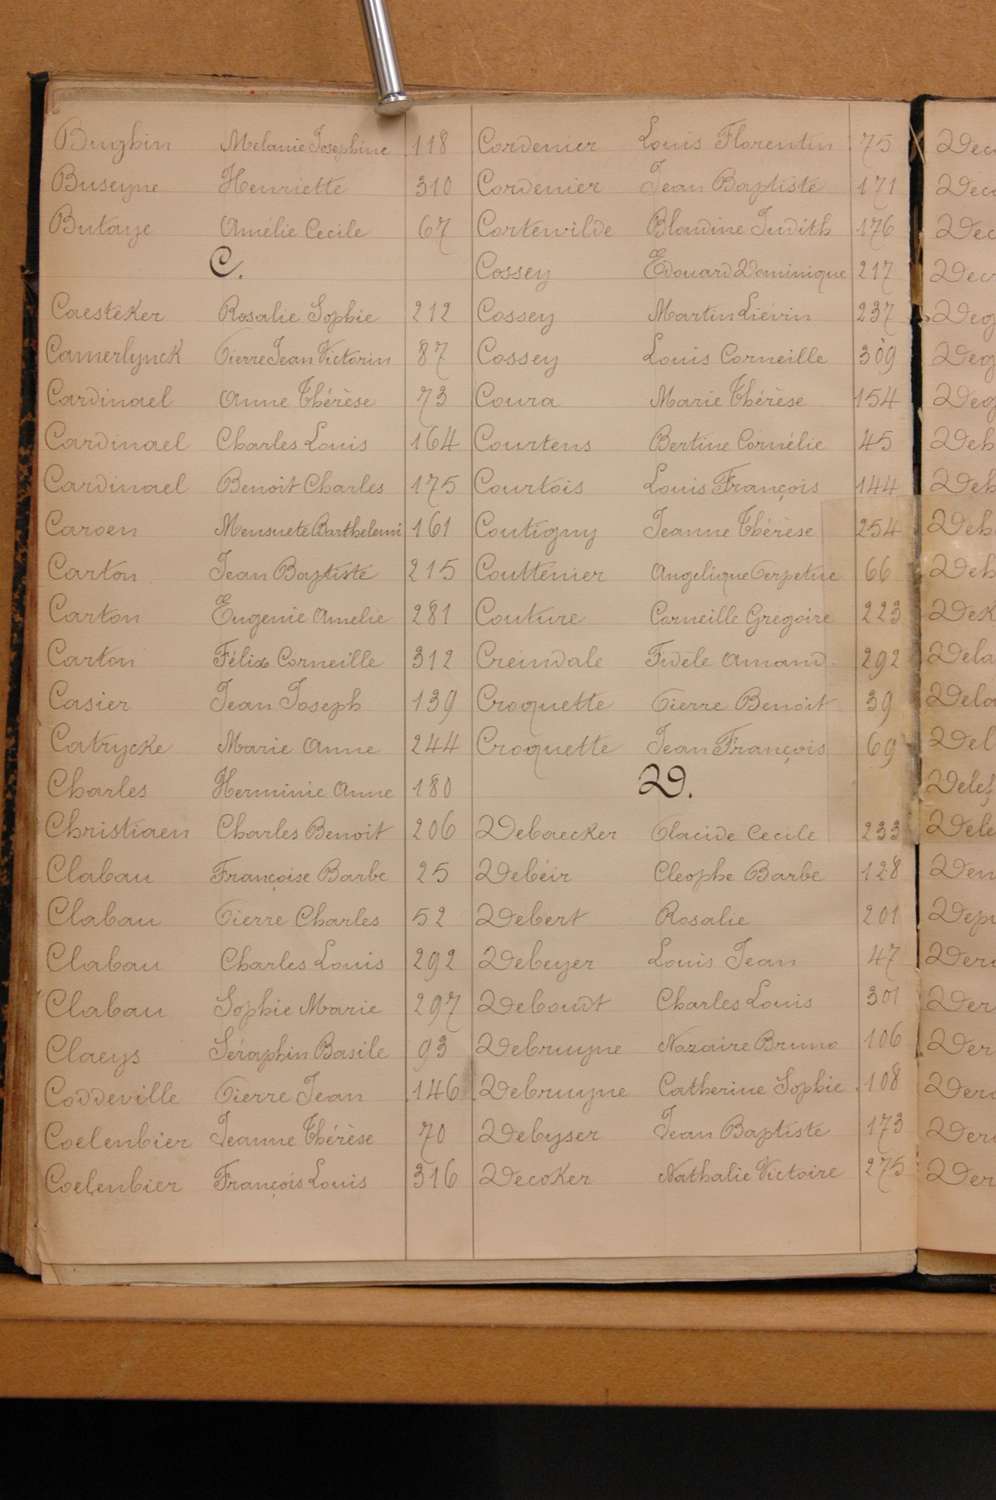 Bughin Mélanie Josephine 118
Buseyne Henriette 310
Butaye Amélie Cecile 67
C.
Caesteker Rosalie Sophie 212
Camerlynck Pierre Jean Victorin 87
Cardinael Anne Thérèse 73
Cardinael Charles Louis 164
Cardinael Benoit Charles 175
Caroen Mensuete Barthelemi 161
Carton Jean Baptiste 215
Carton Eugenie Amelie 281
Carton Félix Corneille 312
Casier Jean Joseph 139
Catrycke Marie Anne 244
Charles Herminie Anne 180
Christiaen Charles Benoit 206
Clabau Françoise Barbe 25
Clabau Pierre Charles 52
Clabau Charles Louis 292
Clabau Sophie Marie 297
Claeys Séraphin Basile 93
Coddeville Pierre Jean 146
Coelenbier Jeanne Thérèse 70
Coelenbier François Louis 316
Cordenier Louis Florentin 75
Cordenier Jean Baptiste 171
Cortewilde Blandine Judith 176
Cossey Edouard Dominique 217
Cossey Martin Liévin 237
Cossey Louis Corneille 309
Coura Marie Thérèse 154
Courtens Bertine Cornélie 45
Courtois Louis François 144
Coutigny Jeanne Thérèse 254
Couttenier Angelique Perpetue 66
Couture Corneille Grégoire 223
Creindale Fidele Amand 292
Croquette Pierre Benoit 39
Croquette Jean François 69
D.
Debaecker Placide Cecile 233
Debeir Cléophe Barbe 128
Debert Rosalie 201
Debeyer Louis Jean 47
Deboudt Charles Louis 301
Debruyne Nazaire Bruno 106
Debruyne Catherine Sophie 108
Debyser Jean Baptiste 173
Decoker Nathalie Victoire 275